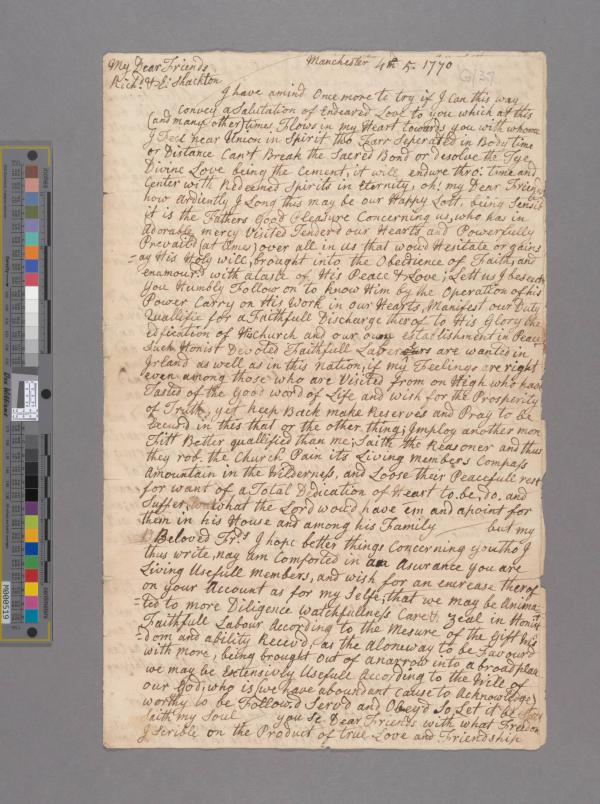 My Dear Friends Manchester 4th 5. 1770
Richd & E: Shackton G137
I have amind Once more to try if I Can this way
Convey a Salutation of Endeared Love to you, which at this
(and many other) times Flows in my Heart towards you with whome
I Feel near Union in Spirit tho Farr Seperated in Body, time
or Distance Can't Break the Sacred Bond or desolve the Tye
Divine Love being the Cement, it will endure thro: time and
Center with Redeemed Spirits in Eternity, oh! my Dear Friends
how Ardiently I Long this may be our Happy Lott, being Sensible
it is the Fathers Good Pleasure Concerning us, who has in
Adorable mercy Visited Tenderd our Hearts and Powerfully
Prevaild (at times) over all in us that woud Hesitate or gains
=ay His Holy will, brought into the Obedience of Faith, and
enamourd with ataste of His Peace & Love; Lett us I beseech
you Humbly Follow on to know Him by the Operation of his
Power Carry on His Work in our Hearts, Manifest our Duty
Quallifie for a Faithfull Discharge therof to His Glory the
Edification of His Church and our own establishment in Peace
Such Honist Devoted Faithfull Laberers are wanted in
Irland as well as in this Nation, if my Feelings are right
even among those who are Visited from on High who have
Tasted of the Good word of Life and wish for the Prosperity
of Truth, yet keep Back make Reserves and Pray to be
Excusd in this that or the other thing; Imploy another more
Fitt Better quallified than me; Saith the Reasoner and thus
they rob the Church Pain its Living members Compass
Amountain in the Wilderness, and Loose their Peacefull rest
for want of a Total Dedication of Heart to be, do, and
Suffer, what the Lord would have em and apoint for
them in his House and among his Family but my
Beloved Frds I hope better things Concerning you tho I
thus write, nay am Comforted in an Asurance you are
Living Usefull members, and wish for an encrease therof
on your Account as for my Selfe, that we may be Anima
=ted to more Diligence Watchfullness Care & Zeal in Honist
Faithfull Labour According to the Mesure of the Gift Wis
=dom and ability Receivd, as the Aloneway to be Favourd
with more, being brought out of anarrow into a broad place
we may be Extensivly Usefull According to the Will of
our God, who is (we have aboundant cause to Acknowledge)
worthy to be Followd Servd and Obeyd So Let it be
Saith my Soul you Se Dear Friends with what Freedom
I Scrible on the Product of true Love and Friendship